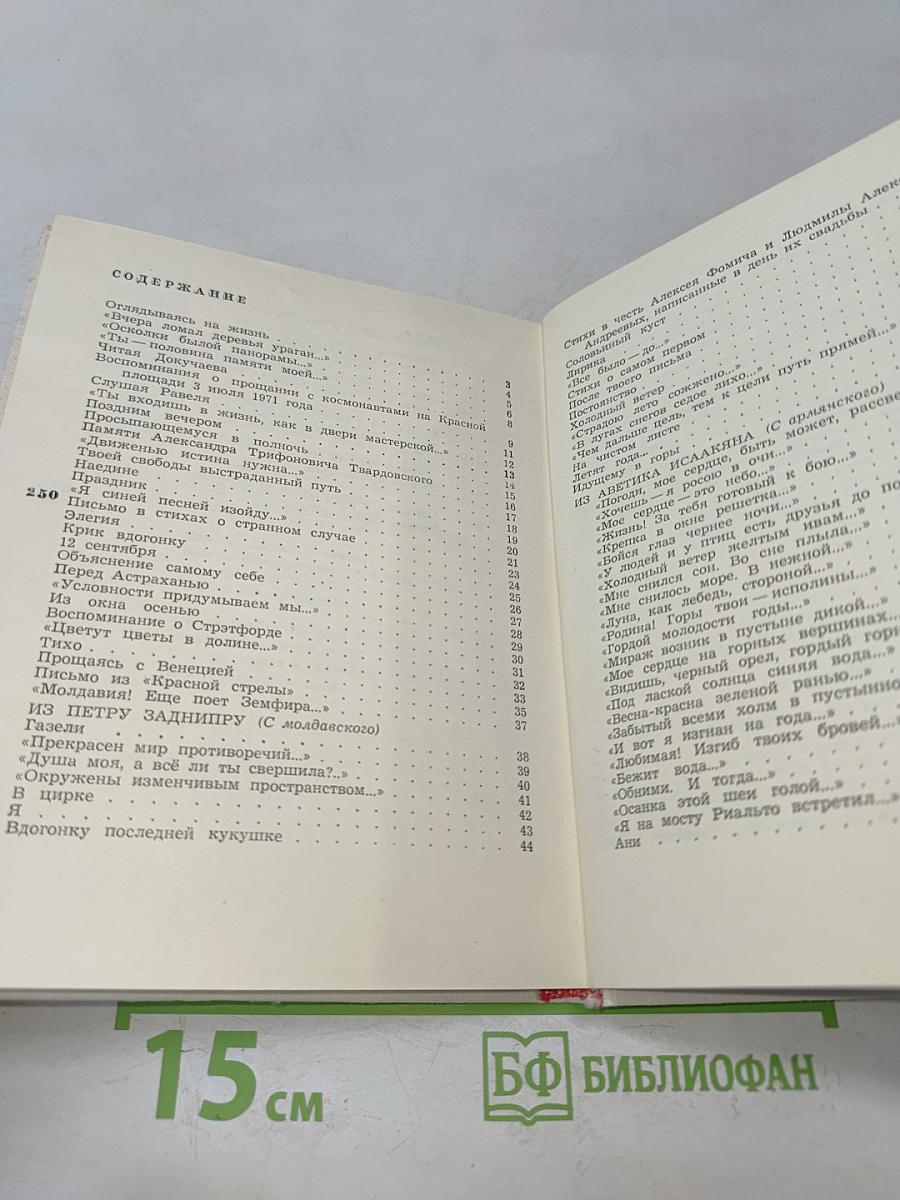 СОДЕРЖАНИЕ
Оглядываясь на жизнь . . . 3
«Вчера ломал деревья ураган...» . . . 4
«Осколки былой панорамы...» . . . 5
«Ты — половина памяти моей...» . . . 6
Читая Докучаева . . . 8
Воспоминания о прощании с космонавтами на Красной
площади 3 июля 1971 года . . . 9
Слушая Равеля . . . 11
«Ты входишь в жизнь, как в двери мастерской...» . . . 12
Поздним вечером . . . 13
Просыпающемуся в полночь . . . 14
Памяти Александра Трифоновича Твардовского . . . 15
«Движенью истина нужна...» . . . 16
Твоей свободы выстраданный путь . . . 17
Наедине . . . 18
Праздник . . . 19
«Я синей песней изойду...» . . . 20
Письмо в стихах о странном случае . . . 21
Элегия . . . 23
Крик вдогонку . . . 24
12 сентября . . . 25
Объяснение самому себе . . . 26
Перед Астраханью . . . 27
«Условности придумываем мы...» . . . 28
Из окна осенью . . . 29
Воспоминание о Стрэтфорде . . . 30
«Цветут цветы в долине...» . . . 31
Тихо . . . 32
Прощаясь с Венецией . . . 33
Письмо из «Красной стрелы» . . . 35
«Молдавия! Еще поет Земфира...» . . . 37
ИЗ ПЕТРУ ЗАДНИПРУ (С молдавского)
Газели . . . 38
«Прекрасен мир противоречий...» . . . 39
«Душа моя, а всё ли ты свершила?..» . . . 40
«Окружены изменчивым пространством...» . . . 41
В цирке . . . 42
Я . . . 43
Вдогонку последней кукушке . . . 44
250
Стихи в честь Алексея Фомича и Людмилы
Андреевых, написанные в день их свадьбы
Соловьиный куст
Лирика
«Все было — до...»
Стихи о самом первом
После твоего письма
Постоянство
Холодный ветер
«Страдою лето сожжено...»
«В лугах снегов седое лихо...»
«Чем дальше цель, тем к цели путь прямей...»
На чистом листе
Летят года...
Идущему в горы
ИЗ АВЕТИКА ИСААКЯНА (С армянского)
«Погоди, мое сердце, быть может,
«Хочешь — я росою в очи...»
«Мое сердце — это небо...»
«Жизнь! За тебя готовый к бою...»
«Крепка в окне решетка...»
«Бойся глаз чернее ночи...»
«У людей и у птиц есть друзья до
«Холодный ветер желтым ивам...»
«Мне снился сон. Во сне плыла...»
«Мне снилось море. В нежной...»
«Луна, как лебедь, стороной...»
«Родина! Горы твои — исполины...»
«Гордой молодости годы...»
«Мираж возник в пустыне дикой...»
«Мое сердце на горных вершинах...
«Видишь, черный орел, гордый
«Под лаской солнца синяя вода...»
«Весна-красна зеленой ранью...»
«Забытый всеми холм в
«И вот я изгнан на года...»
«Любимая! Изгиб твоих бровей...»
«Бежит вода...»
«Обними. И тогда...»
«Осанка этой шеи голой...»
«Я на мосту Риальто встретил...»
Ани
15 см
БФ БИБЛИОФАН